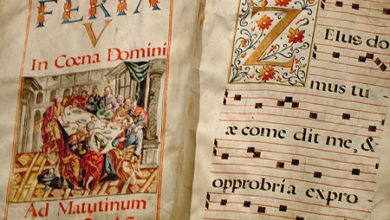 FERIA
V
In Cœna Domini
Ad Matutinum
Zelus do
mus tu
æ come dit me, &
opprobria expro